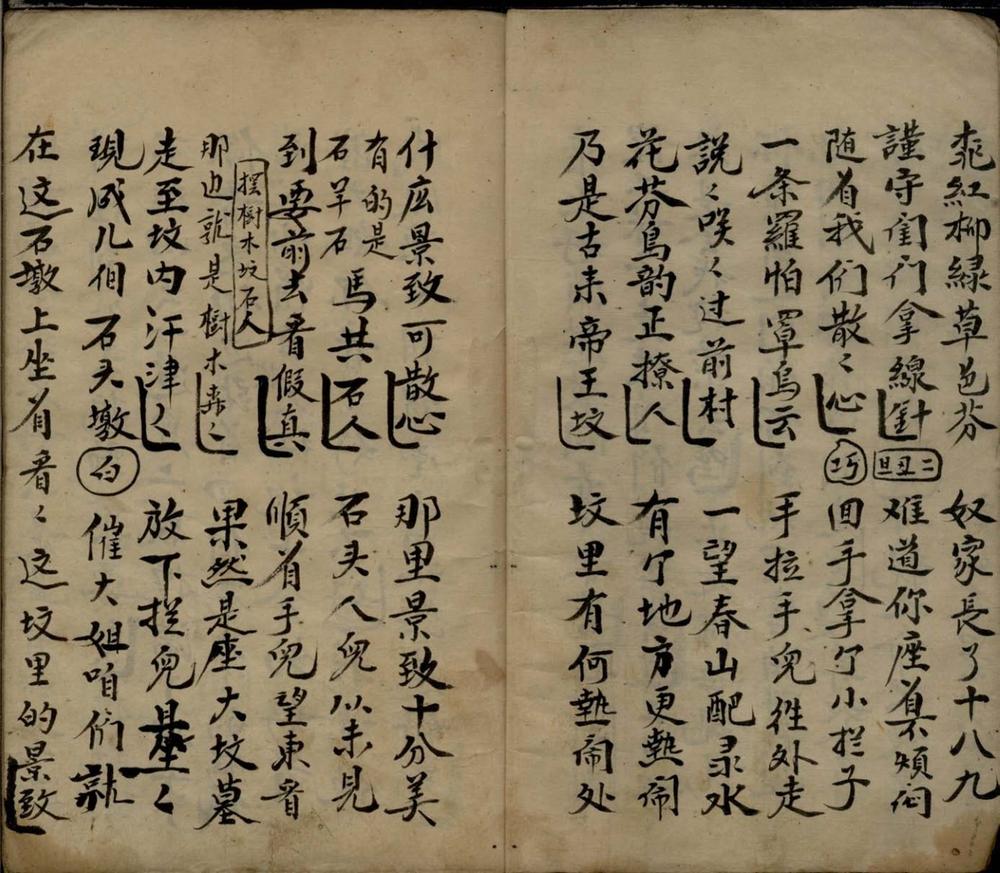 桃紅柳緑草色芬 奴家長了十八九
謹守閨门拿線針 二丑旦 难道你座着不煩闷
随着我们散〻心 巧 回手拿个小拦子
一条羅怕罩烏云 手拉手兒徃外走
說〻咲〻过前村 一望春山配录水
花芬鳥韵正撩人 有个地方更熱闹
乃是古来帝王坟 坟里有何熱闹处
什広景致可散心 那里景致十分美
有的是石羊石馬共石人 石头人兒从未見
到要前去看假真 順着手兒望東看
摆樹木坟石人
那边就是樹木森〻 果然是座大坟墓
走至坟内汗津〻 放下拦兒且坐〻
現成几個石头墩 白 催大姐咱们就
在这石墩上坐着看〻这坟里的景致